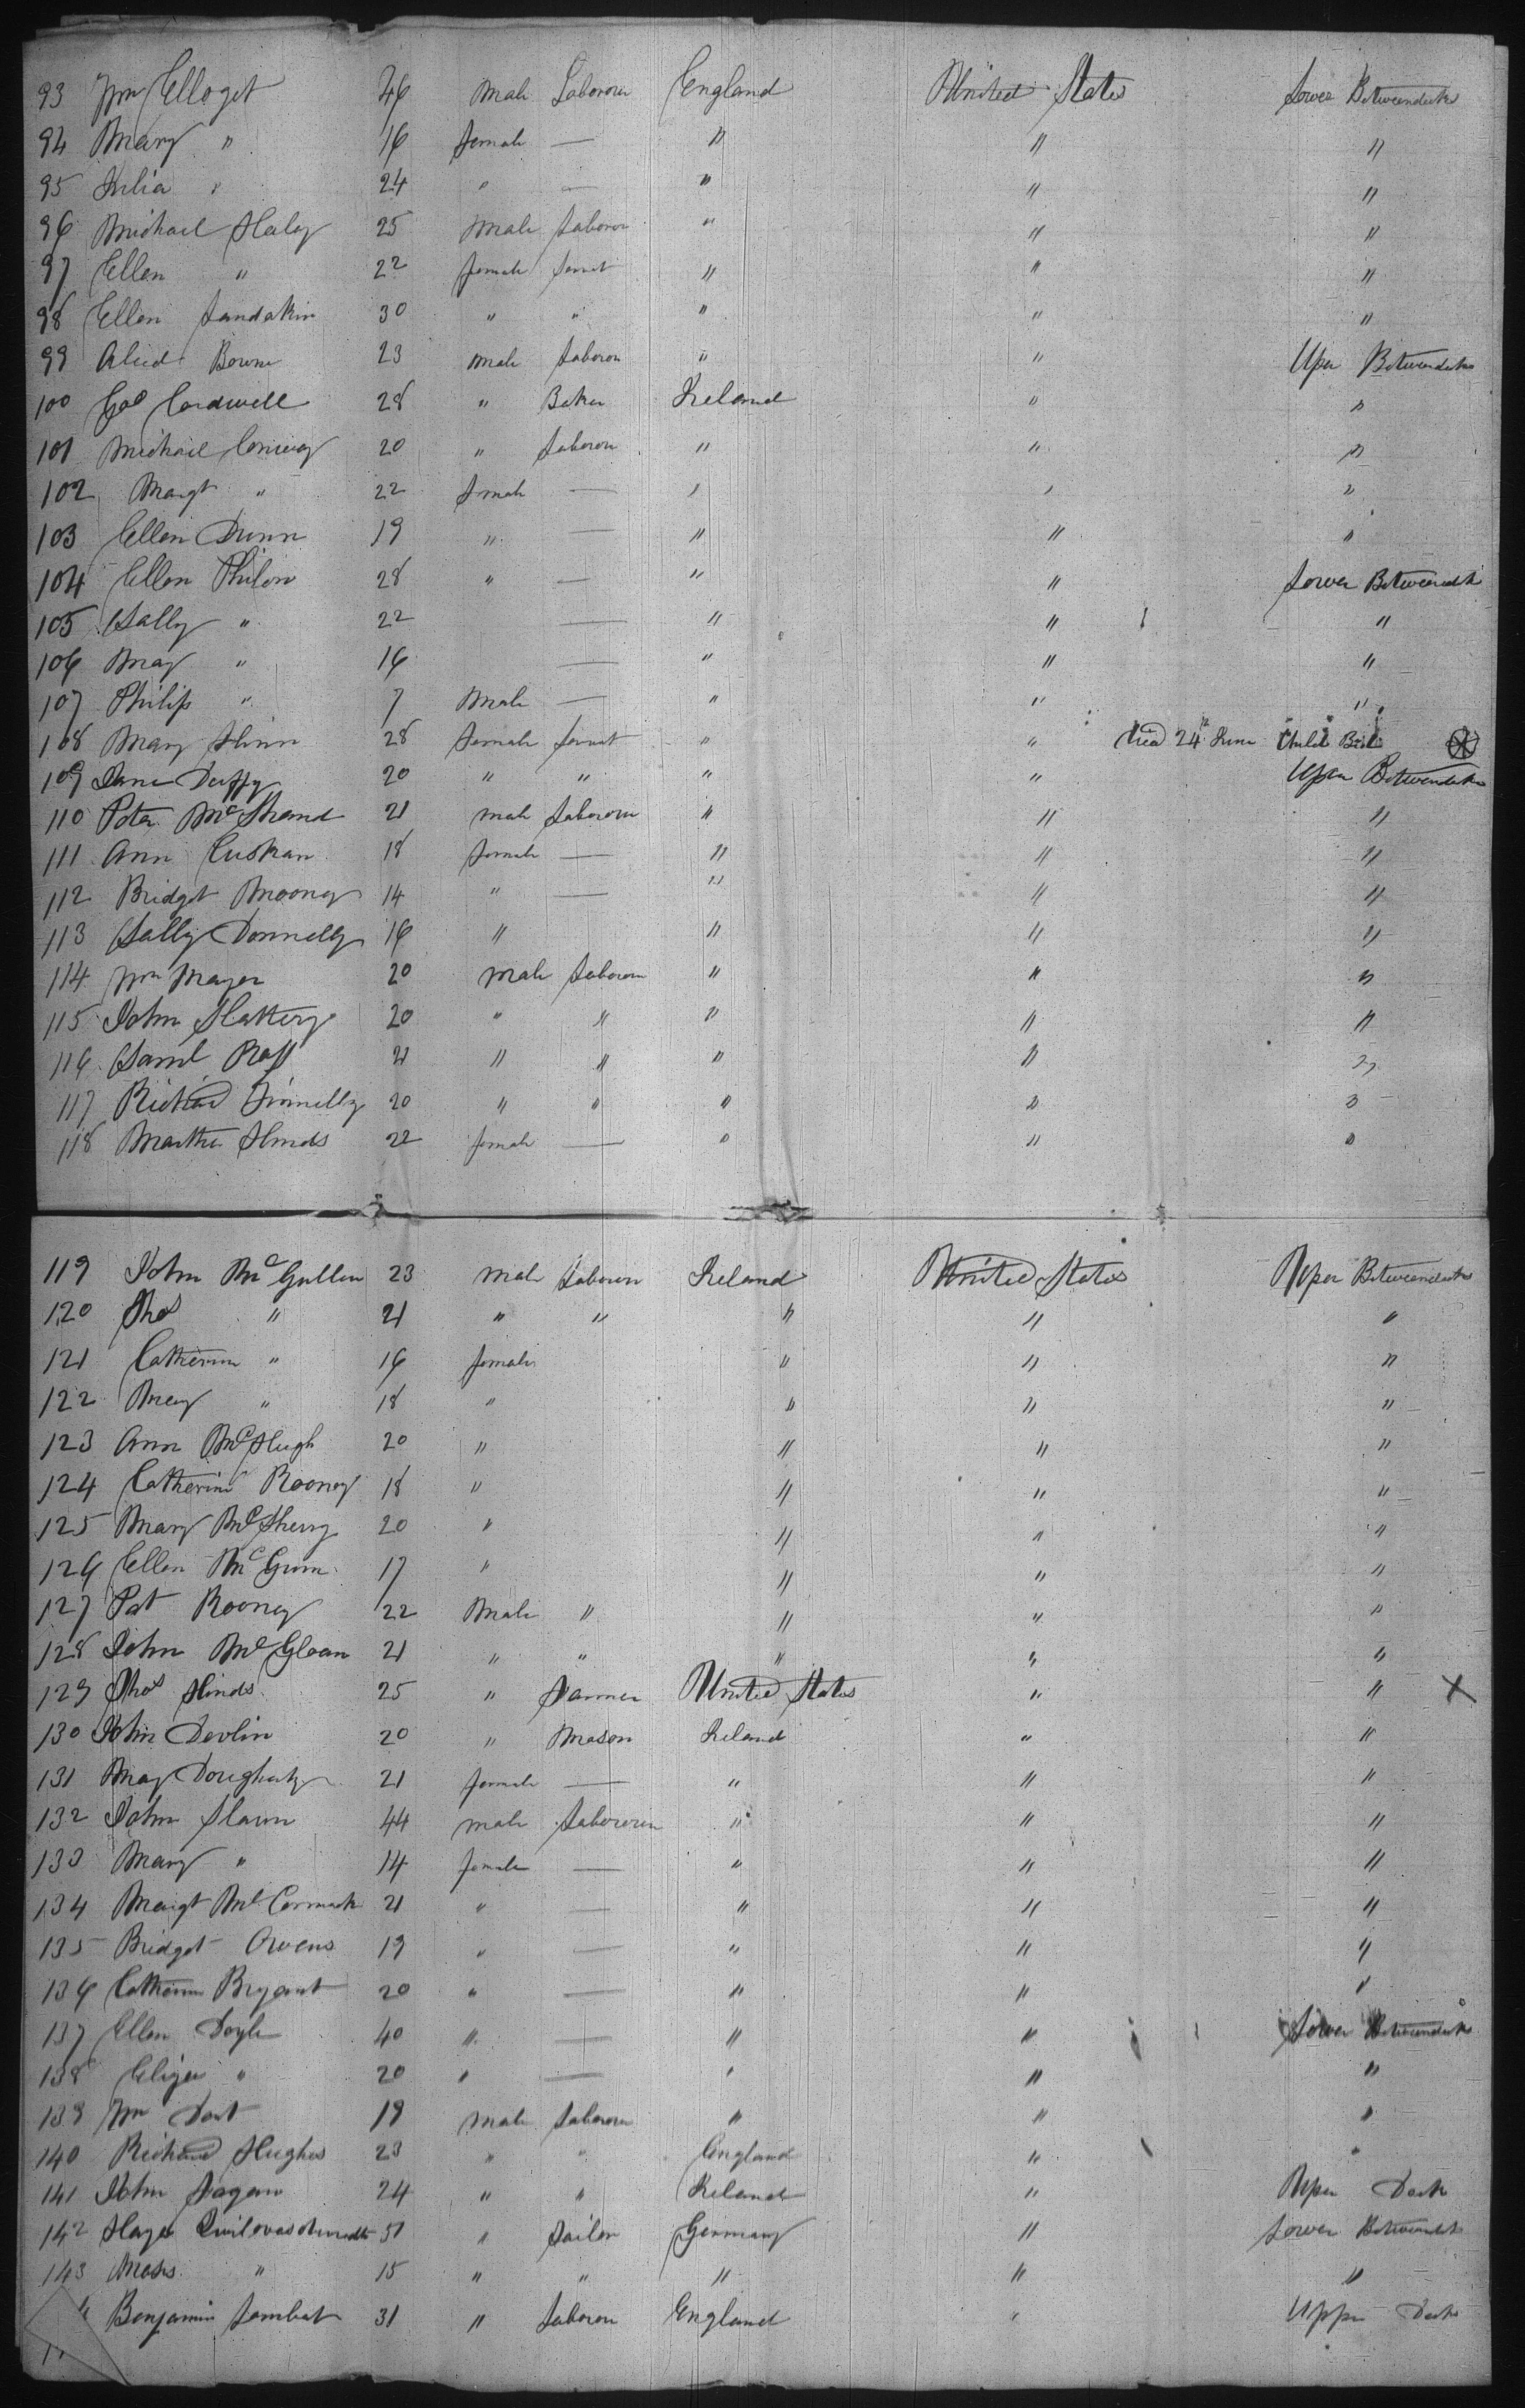 93 Wm Elloget 46 Male Laborer England United States Lower Betweendecks
94 Mary " 16 female — " " "
95 Julia " 24 " — " " "
96 Michael Haley 25 Male Laborer " " "
97 Ellen " 22 female servt " " "
98 Ellen 30 " " " " "
99 Bowne 23 male Laborer " " Uper Betwendecks
100 Geo Cardwell 28 " Baker Ireland " "
101 Michael Conway 20 " Laborer " " "
102 Margt " 22 female — " " "
103 Ellen Dunn 19 " — " " "
104 Ellen Philon 28 " — " " Lower Betweendk
105 Sally " 22 — " " "
106 May " 16 — " " "
107 Philip " 7 Male — " " "
108 Mary Flinn 28 female servt " " Died 24th June Child
109 Jane Duffy 20 " " " " Uper Betwendecks
110 Peter McShand 21 male Laborer " " "
111 Ann Cuskan 18 female — " " "
112 Bridget Mooney 14 " — " " "
113 Sally Donnelly 16 " " " "
114 Wm Mayer 20 male Laborer " " "
115 John Slattery 20 " " " " "
116 Saml Ross 21 " " " " "
117 Richard Finnelly 20 " " " " "
118 Martha Hinds 22 female — " " "
119 John McGullen 23 male Laborer Ireland United States Uper Betweendecks
120 Thos " 21 " " " " "
121 Catherine " 16 female " " "
122 Mary " 18 " " " "
123 Ann McHugh 20 " " " "
124 Catherine Rooney 18 " " " "
125 Mary McSherry 20 " " " "
126 Ellen McGrim 17 " " " "
127 Pat Rooney 22 Male " " " "
128 John McGloan 21 " " " " "
129 Thos Hinds 25 " Farmer United States " " X
130 John Devlin 20 " Mason Ireland " "
131 May Dougherty 21 female — " " "
132 John Slavin 44 male Laborer " " "
133 Mary " 14 female — " " "
134 Margt McCormack 21 " — " " "
135 Bridget Owens 19 " — " " "
136 Catherine Bryant 20 " — " " "
137 Ellen Doyle 40 " — " " Lower Betweendecks
138 Eliza " 20 " — " " "
139 Wm Dort 19 male Laborer " " "
140 Richard Hughes 23 " " England " "
141 John Fagan 24 " " Ireland " Uper Deck
142 51 " Tailor Germany " Lower Betweendk
143 Moses " 15 " " " " "
Benjamin Lambert 31 " Laborer England " Upper Deck